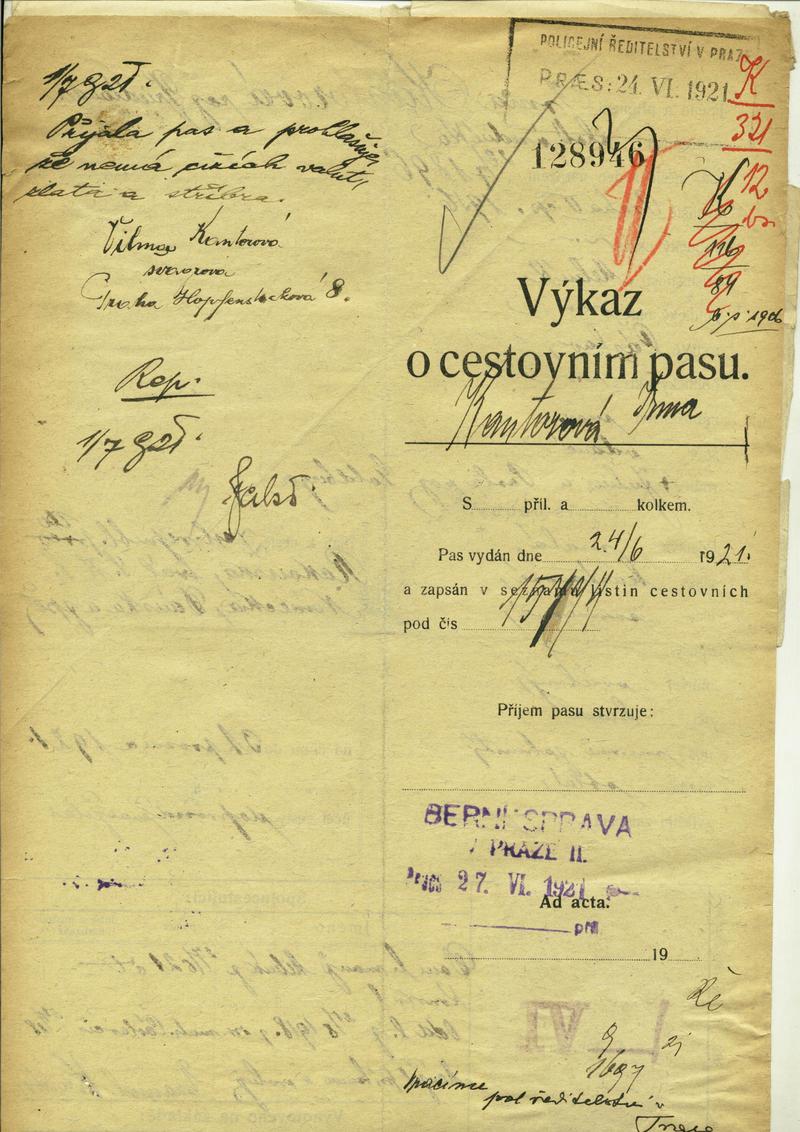 1/7 921.
Přijala pas a prohlašuje,
že nemá cizích valut,
zlata a stříbra.
Vilma Kantorová
Praha 8.
Rep.
1/7 921.
POLICEJNÍ ŘEDITELSTVÍ V PRAZE
PRÆS: 24. VI. 1921
128946
K
321
12
K
116
89
Výkaz
o cestovním pasu.
Kantorová Irma
S příl. a kolkem.
Pas vydán dne 24/6 1921.
a zapsán v seznamu listin cestovních
pod čís
Příjem pasu stvrzuje:
BERNÍ SPRÁVA
V PRAZE II.
Præs 27. VI. 1921
Ad acta.
příl
19
VI
1697
pol. ředitelství v
Praze